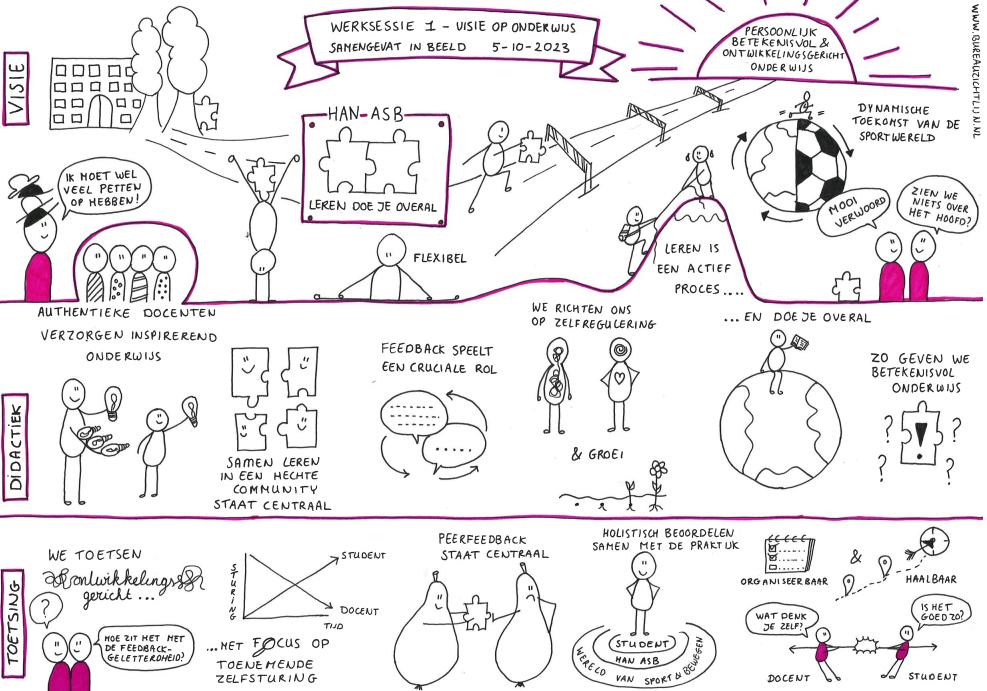 WERKSESSIE 1 - VISIE OP ONDERWIJS
SAMENGEVAT IN BEELD 5-10-2023
PERSOONLIJK
BETEKENISVOL &
ONTWIKKELINGSGERICHT
ONDERWIJS
WWW.BUREAUZICHTLIJN.NL
VISIE
HAN-ASB
LEREN DOE JE OVERAL
DYNAMISCHE
TOEKOMST VAN DE
SPORTWERELD
IK MOET WEL
VEEL PETTEN
OP HEBBEN!
MOOI
VERWOORD
ZIEN WE
NIETS OVER
HET HOOFD?
FLEXIBEL
LEREN IS
EEN ACTIEF
PROCES....
AUTHENTIEKE DOCENTEN
VERZORGEN INSPIREREND
ONDERWIJS
WE RICHTEN ONS
OP ZELFREGULERING
...EN DOE JE OVERAL
DIDACTIEK
FEEDBACK SPEELT
EEN CRUCIALE ROL
ZO GEVEN WE
BETEKENISVOL
ONDERWIJS
SAMEN LEREN
IN EEN HECHTE
COMMUNITY
STAAT CENTRAAL
& GROEI
? ! ?
? ?
TOETSING
WE TOETSEN
ontwikkelings
gericht...
?
HOE ZIT HET MET
DE FEEDBACK-
GELETTERDHEID?
STURING
STUDENT
DOCENT
TIJD
...MET FOCUS OP
TOENEMENDE
ZELFSTURING
PEERFEEDBACK
STAAT CENTRAAL
HOLISTISCH BEOORDELEN
SAMEN MET DE PRAKTIJK
STUDENT
HAN ASB
WERELD VAN SPORT & BEWEGEN
ORGANISEERBAAR
&
HAALBAAR
WAT DENK
JE ZELF?
IS HET
GOED ZO?
DOCENT
STUDENT